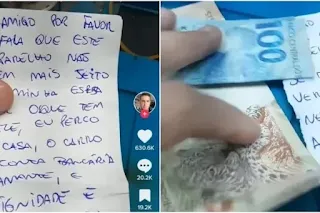 AMIGO POR FAVOR
FALA QUE ESTE
PARELHO NÃO
EM MAIS JEITO
MINHA ESPOSA
O QUE TEM
ELE, EU PERCO
CASA, O CARRO
CONTA BANCÁRIA
AMANTE, E
DIGNIDADE E
630.6K
20.2K
19.2K
100